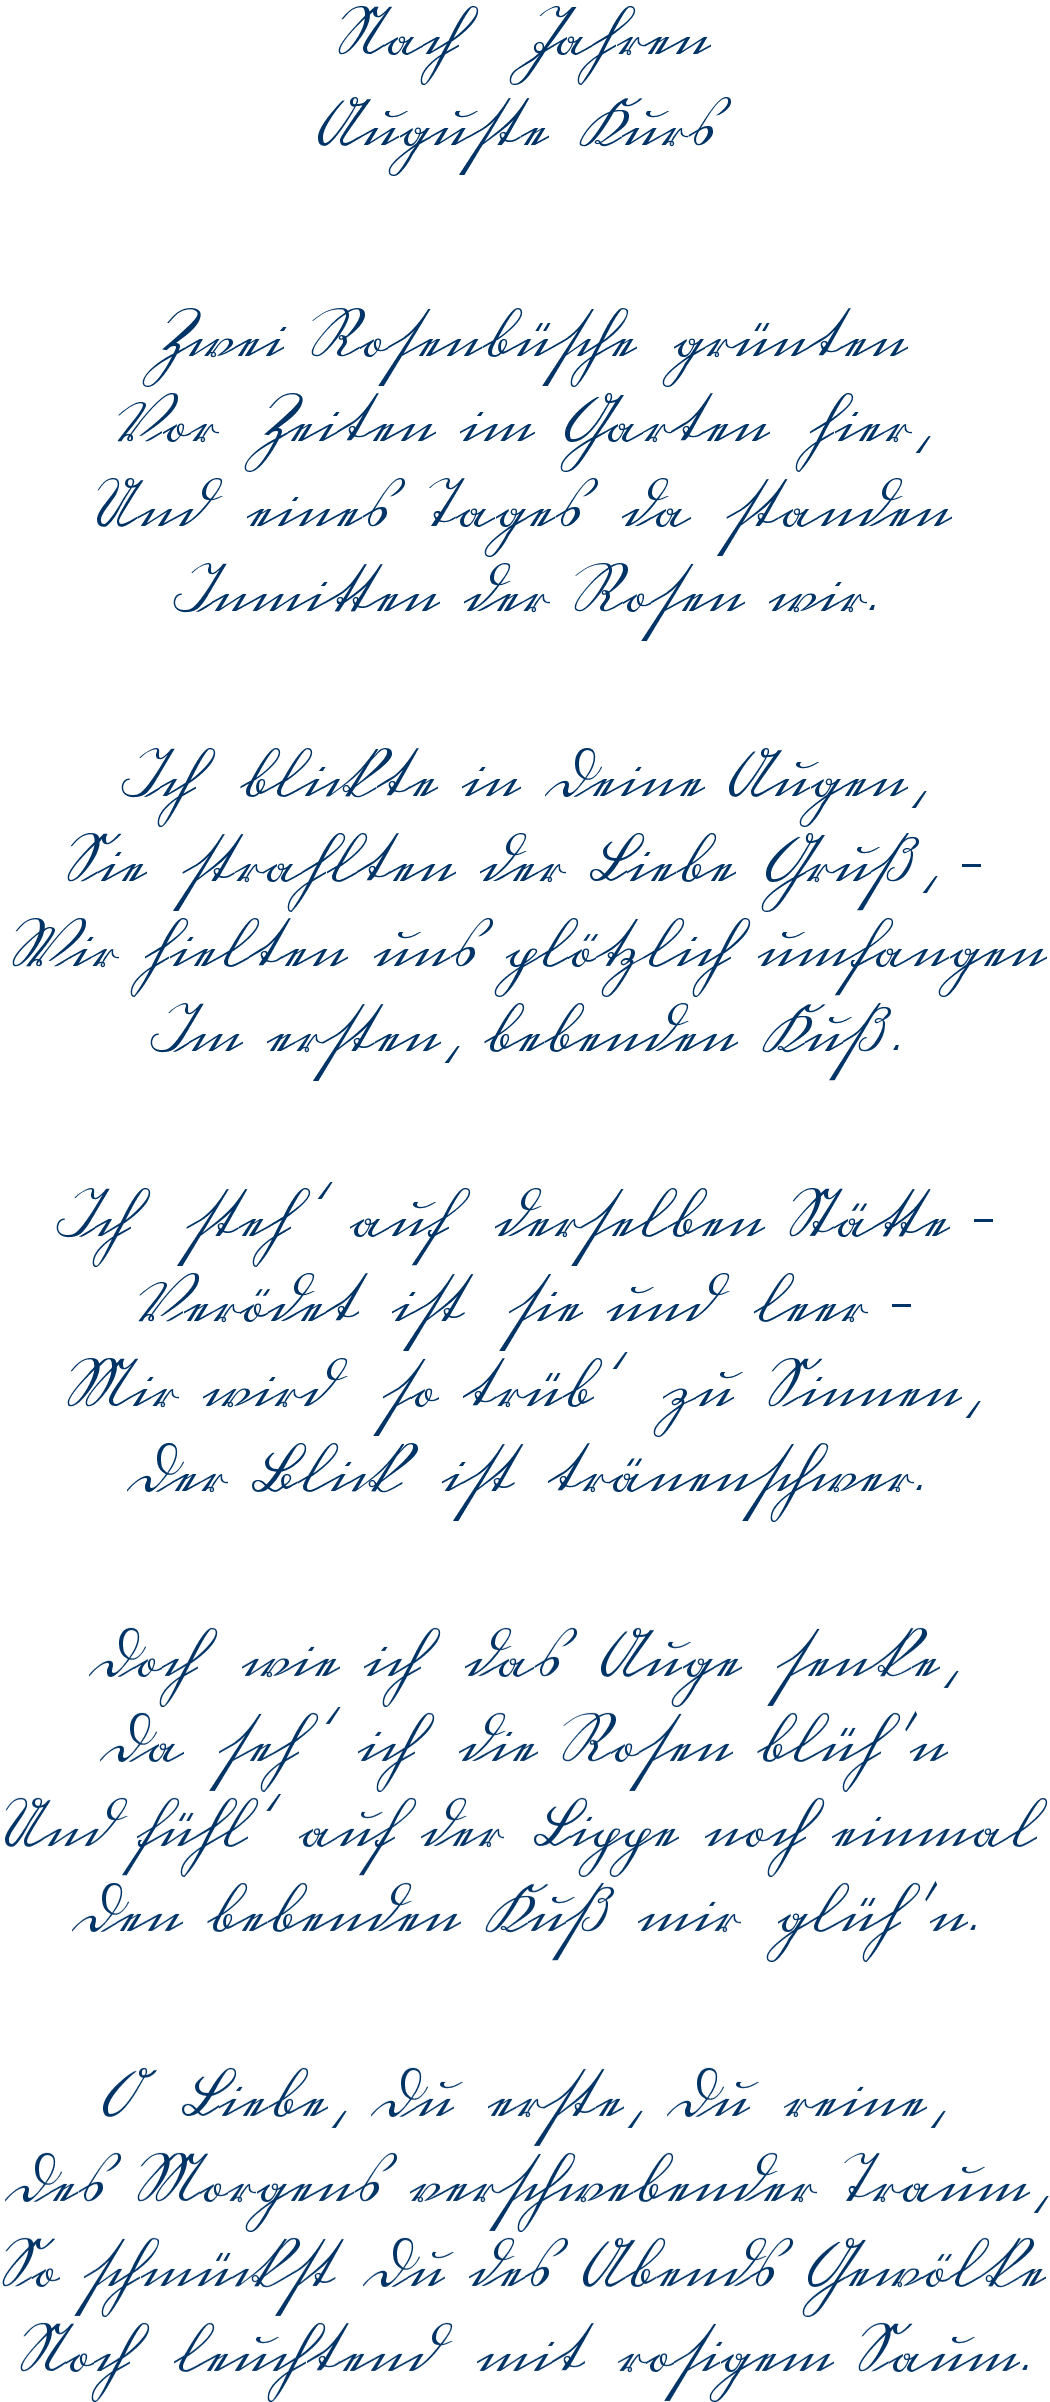 Nach Jahren
Auguste Kurs
Zwei Rosenbüsche grünten
Vor Zeiten im Garten hier,
Und eines Tages da standen
Inmitten der Rosen wir.
Ich blickte in Deine Augen,
Sie strahlten der Liebe Gruß, -
Wir hielten uns plötzlich umfangen
Im ersten, bebenden Kuß.
Ich steh' auf derselben Stätte -
Verödet ist sie und leer -
Mir wird so trüb' zu Sinnen,
Der Blick ist tränenschwer.
Doch wie ich das Auge senke,
Da seh' ich die Rosen blüh'n
Und fühl' auf der Lippe noch einmal
Den bebenden Kuß mir glüh'n.
O Liebe, Du erste, Du reine,
Des Morgens verschwebender Traum,
So schmückst Du des Abends Gewölke
Noch leuchtend mit rosigem Saum.